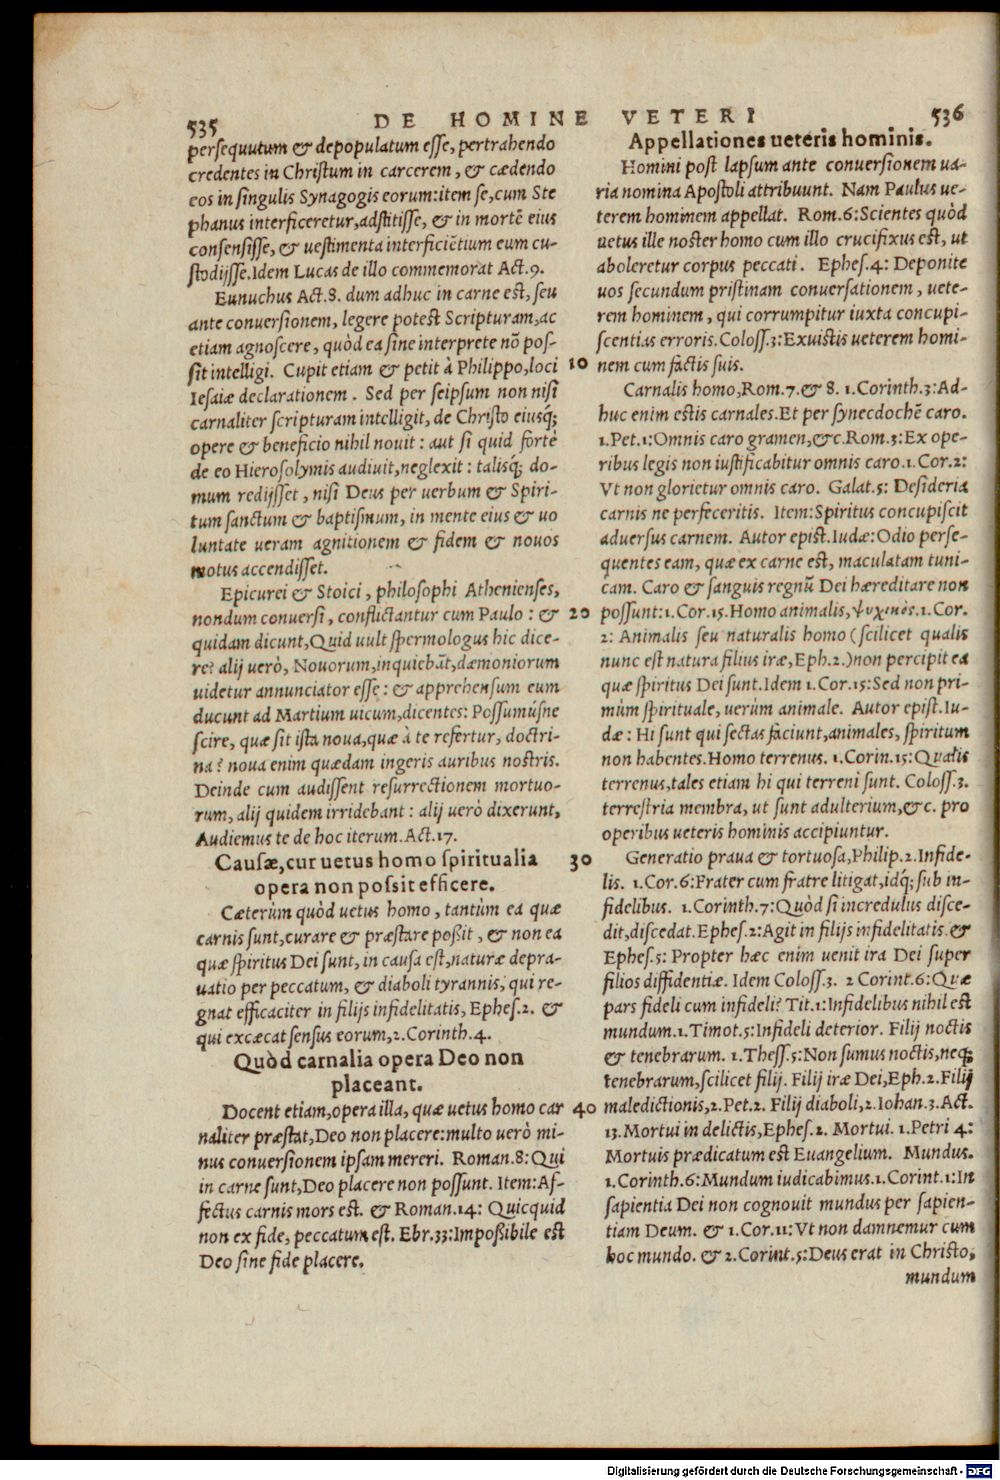 535 DE HOMINE VETERI 536
persequutum & depopulatum esse, pertrahendo
credentes in Christum in carcerem, & cædendo
eos in singulis Synagogis eorum: item se, cum Ste
phanus interficeretur, adstitisse, & in mortē eius
consensisse, & uestimenta interficiētium eum cu-
stodijsse. Idem Lucas de illo commemorat Act.9.
Eunuchus Act.8. dum adhuc in carne est, seu
ante conuersionem, legere potest Scripturam, ac
etiam agnoscere, quòd ea sine interprete nō pos-
sit intelligi. Cupit etiam & petit à Philippo, loci
Iesaiæ declarationem. Sed per seipsum non nisi
carnaliter scripturam intelligit, de Christo eiusq́;
opere & beneficio nihil nouit: aut si quid fortè
de eo Hierosolymis audiuit, neglexit: talisq́; do-
mum redijsset, nisi Deus per uerbum & Spiri-
tum sanctum & baptismum, in mente eius & uo
luntate ueram agnitionem & fidem & nouos
motus accendisset.
Epicurei & Stoici, philosophi Athenienses,
nondum conuersi, conflictantur cum Paulo: &
quidam dicunt, Quid uult spermologus hic dice-
re? alij uerò, Nouorum, inquiebāt, dæmoniorum
uidetur annunciator esse: & apprehensum eum
ducunt ad Martium uicum, dicentes: Possumúsne
scire, quæ sit ista noua, quæ à te refertur, doctri-
na? noua enim quædam ingeris auribus nostris.
Deinde cum audissent resurrectionem mortuo-
rum, alij quidem irridebant: alij uerò dixerunt,
Audiemus te de hoc iterum. Act.17.
Causæ, cur uetus homo spiritualia
opera non possit efficere.
Cæterùm quòd uetus homo, tantùm ea quæ
carnis sunt, curare & præstare poßit, & non ea
quæ spiritus Dei sunt, in causa est, naturæ depra-
uatio per peccatum, & diaboli tyrannis, qui re-
gnat efficaciter in filijs infidelitatis, Ephes.2. &
qui excæcat sensus eorum, 2.Corinth.4.
Quòd carnalia opera Deo non
placeant.
Docent etiam, opera illa, quæ uetus homo car
naliter præstat, Deo non placere: multo uerò mi-
nus conuersionem ipsam mereri. Roman.8: Qui
in carne sunt, Deo placere non possunt. Item: Af-
fectus carnis mors est. & Roman.14: Quicquid
non ex fide, peccatum est. Ebr.33: Impoßibile est
Deo sine fide placere.
Appellationes ueteris hominis.
Homini post lapsum ante conuersionem ua-
ria nomina Apostoli attribuunt. Nam Paulus ue-
terem hominem appellat. Rom.6: Scientes quòd
uetus ille noster homo cum illo crucifixus est, ut
aboleretur corpus peccati. Ephes.4: Deponite
uos secundum pristinam conuersationem, uete-
rem hominem, qui corrumpitur iuxta concupi-
scentias erroris. Coloss.3: Exuistis ueterem homi-
10 nem cum factis suis.
Carnalis homo, Rom.7. & 8. 1.Corinth.3: Ad-
huc enim estis carnales. Et per synecdochē caro.
1.Pet.1: Omnis caro gramen, &c. Rom.3: Ex ope-
ribus legis non iustificabitur omnis caro. 1.Cor.2:
Vt non glorietur omnis caro. Galat.5: Desideria
carnis ne perfeceritis. Item: Spiritus concupiscit
aduersus carnem. Autor epist. Iudæ: Odio perse-
quentes eam, quæ ex carne est, maculatam tuni-
cam. Caro & sanguis regnū Dei hæreditare non
20 possunt: 1.Cor.15. Homo animalis, ψυχικὸς. 1.Cor.
2: Animalis seu naturalis homo (scilicet qualis
nunc est natura filius iræ, Eph.2.) non percipit ea
quæ spiritus Dei sunt. Idem 1.Cor.15: Sed non pri-
mùm spirituale, uerùm animale. Autor epist. Iu-
dæ: Hi sunt qui sectas faciunt, animales, spiritum
non habentes. Homo terrenus. 1.Corin.15: Qualis
terrenus, tales etiam hi qui terreni sunt. Coloss.3.
terrestria membra, ut sunt adulterium, &c. pro
operibus ueteris hominis accipiuntur.
30 Generatio praua & tortuosa, Philip.2. Infide-
lis. 1.Cor.6: Frater cum fratre litigat, idq́; sub in-
fidelibus. 1.Corinth.7: Quòd si incredulus disce-
dit, discedat. Ephes.2: Agit in filijs infidelitatis. &
Ephes.5: Propter hæc enim uenit ira Dei super
filios diffidentiæ. Idem Coloss.3. 2 Corint.6: Quæ
pars fideli cum infideli? Tit.1: Infidelibus nihil est
mundum. 1.Timot.5: Infideli deterior. Filij noctis
& tenebrarum. 1.Thess.5: Non sumus noctis, neq;
tenebrarum, scilicet filij. Filij iræ Dei, Eph.2. Filij
40 maledictionis, 2.Pet.2. Filij diaboli, 2.Iohan.3. Act.
13. Mortui in delictis, Ephes.2. Mortui. 1.Petri 4:
Mortuis prædicatum est Euangelium. Mundus.
1.Corinth.6: Mundum iudicabimus. 1.Corint.1: In
sapientia Dei non cognouit mundus per sapien-
tiam Deum. & 1.Cor.11: Vt non damnemur cum
hoc mundo. & 2.Corint.5: Deus erat in Christo,
mundum
Digitalisierung gefördert durch die Deutsche Forschungsgemeinschaft - DFG